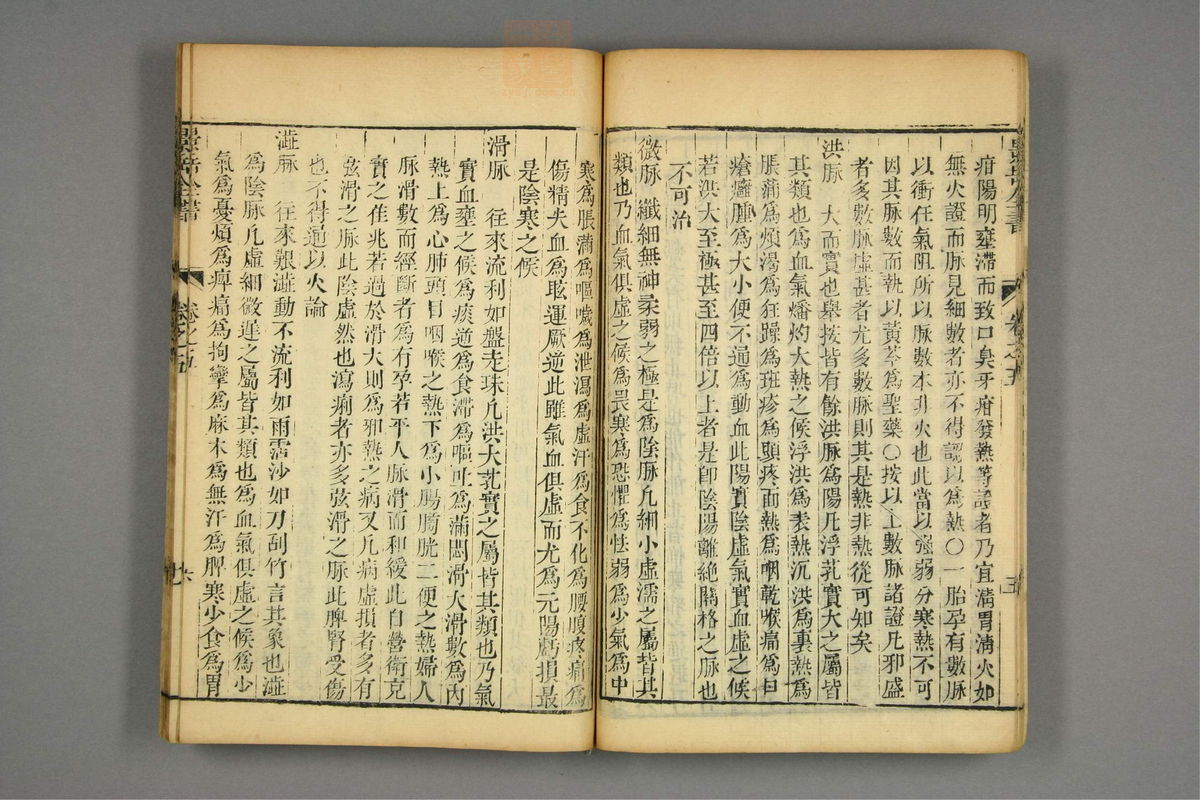 疳陽明壅滯而致口臭牙疳發熱等證者乃宜清胃清火如
無火證而脉見細數者亦不得認以為熱〇一胎孕有數脉
以衝任氣阻所以脉數本非火也此當以强弱分寒熱不可
因其脉數而執以黃芩為聖藥〇按以上數脉諸證凡邪盛
者多數脉虛甚者尤多數脉則其是熱非熱從可知矣
洪脉　大而實也舉按皆有餘洪脉為陽凡浮芤實大之屬皆
其類也為血氣燔灼大熱之候浮洪為表熱沉洪為裏熱為
脹滿為煩渴為狂躁為斑疹為頭疼面熱為咽乾喉痛為口
瘡癰腫為大小便不通為動血此陽實陰虛氣實血虛之候
若洪大至極甚至四倍以上者是卽陰陽離絕關格之脉也
不可治
微脉　纖細無神柔弱之極是為陰脉凡細小虛濡之屬皆其
類也乃血氣俱虛之候為畏寒為恐懼為怯弱為少氣為中
寒為脹滿為嘔噦為泄瀉為虛汗為食不化為腰腹疼痛為
傷精失血為眩運厥逆此雖氣血俱虛而尤為元陽虧損最
是陰寒之候
滑脉　往來流利如盤走珠凡洪大芤實之屬皆其類也乃氣
實血壅之候為痰逆為食滯為嘔吐為滿悶滑大滑數為內
熱上為心肺頭目咽喉之熱下為小腸膀胱二便之熱婦人
脉滑數而經斷者為有孕若平人脉滑而和緩此自營衛充
實之佳兆若過於滑大則為邪熱之病又凡病虛損者多有
弦滑之脉此陰虛然也瀉痢者亦多弦滑之脉此脾腎受傷
也不得通以火論
澁脉　往來艱澁動不流利如雨霑沙如刀刮竹言其象也澁
為陰脉凡虛細微遲之屬皆其類也為血氣俱虛之候為少
氣為憂煩為痺痛為拘攣為麻木為無汗為脾寒少食為胃
景岳全書
卷之五
六